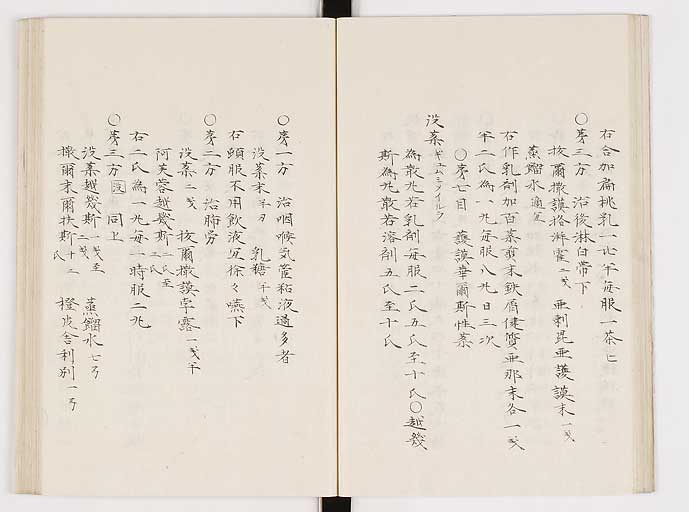 右合加扁桃乳一止半每服一茶匕
○第三方 治後淋白帯下
抜爾撒謨格湃霍二戔 亜剌毘亜護謨末一戔
蒸餾水適宜
右作乳剤加百薬煎末鉄屑健質亜那末各一戔
半二氏為一丸每服八丸日三次
○第七目 護謨華爾斯性薬
没薬ギュムミメイルク
為散丸若乳剤每服二氏五氏至十氏○越幾
斯為丸散若溶剤五氏至十氏
○第一方 治咽喉気管粘液過多者
没薬末半刃 乳糖十戔
右頓服不用飲液宜徐々嚥下
○第二方 治肺労
没薬二戔 抜爾撒謨孛露一戔半
阿芙蓉越幾斯二氏至三氏
右二氏為一丸每一時服二丸
○第三方 同上
没薬越幾斯一戔至二戔 蒸餾水七ヲ
撒爾末爾扶斯十二氏 橙皮舎利別一ヲ